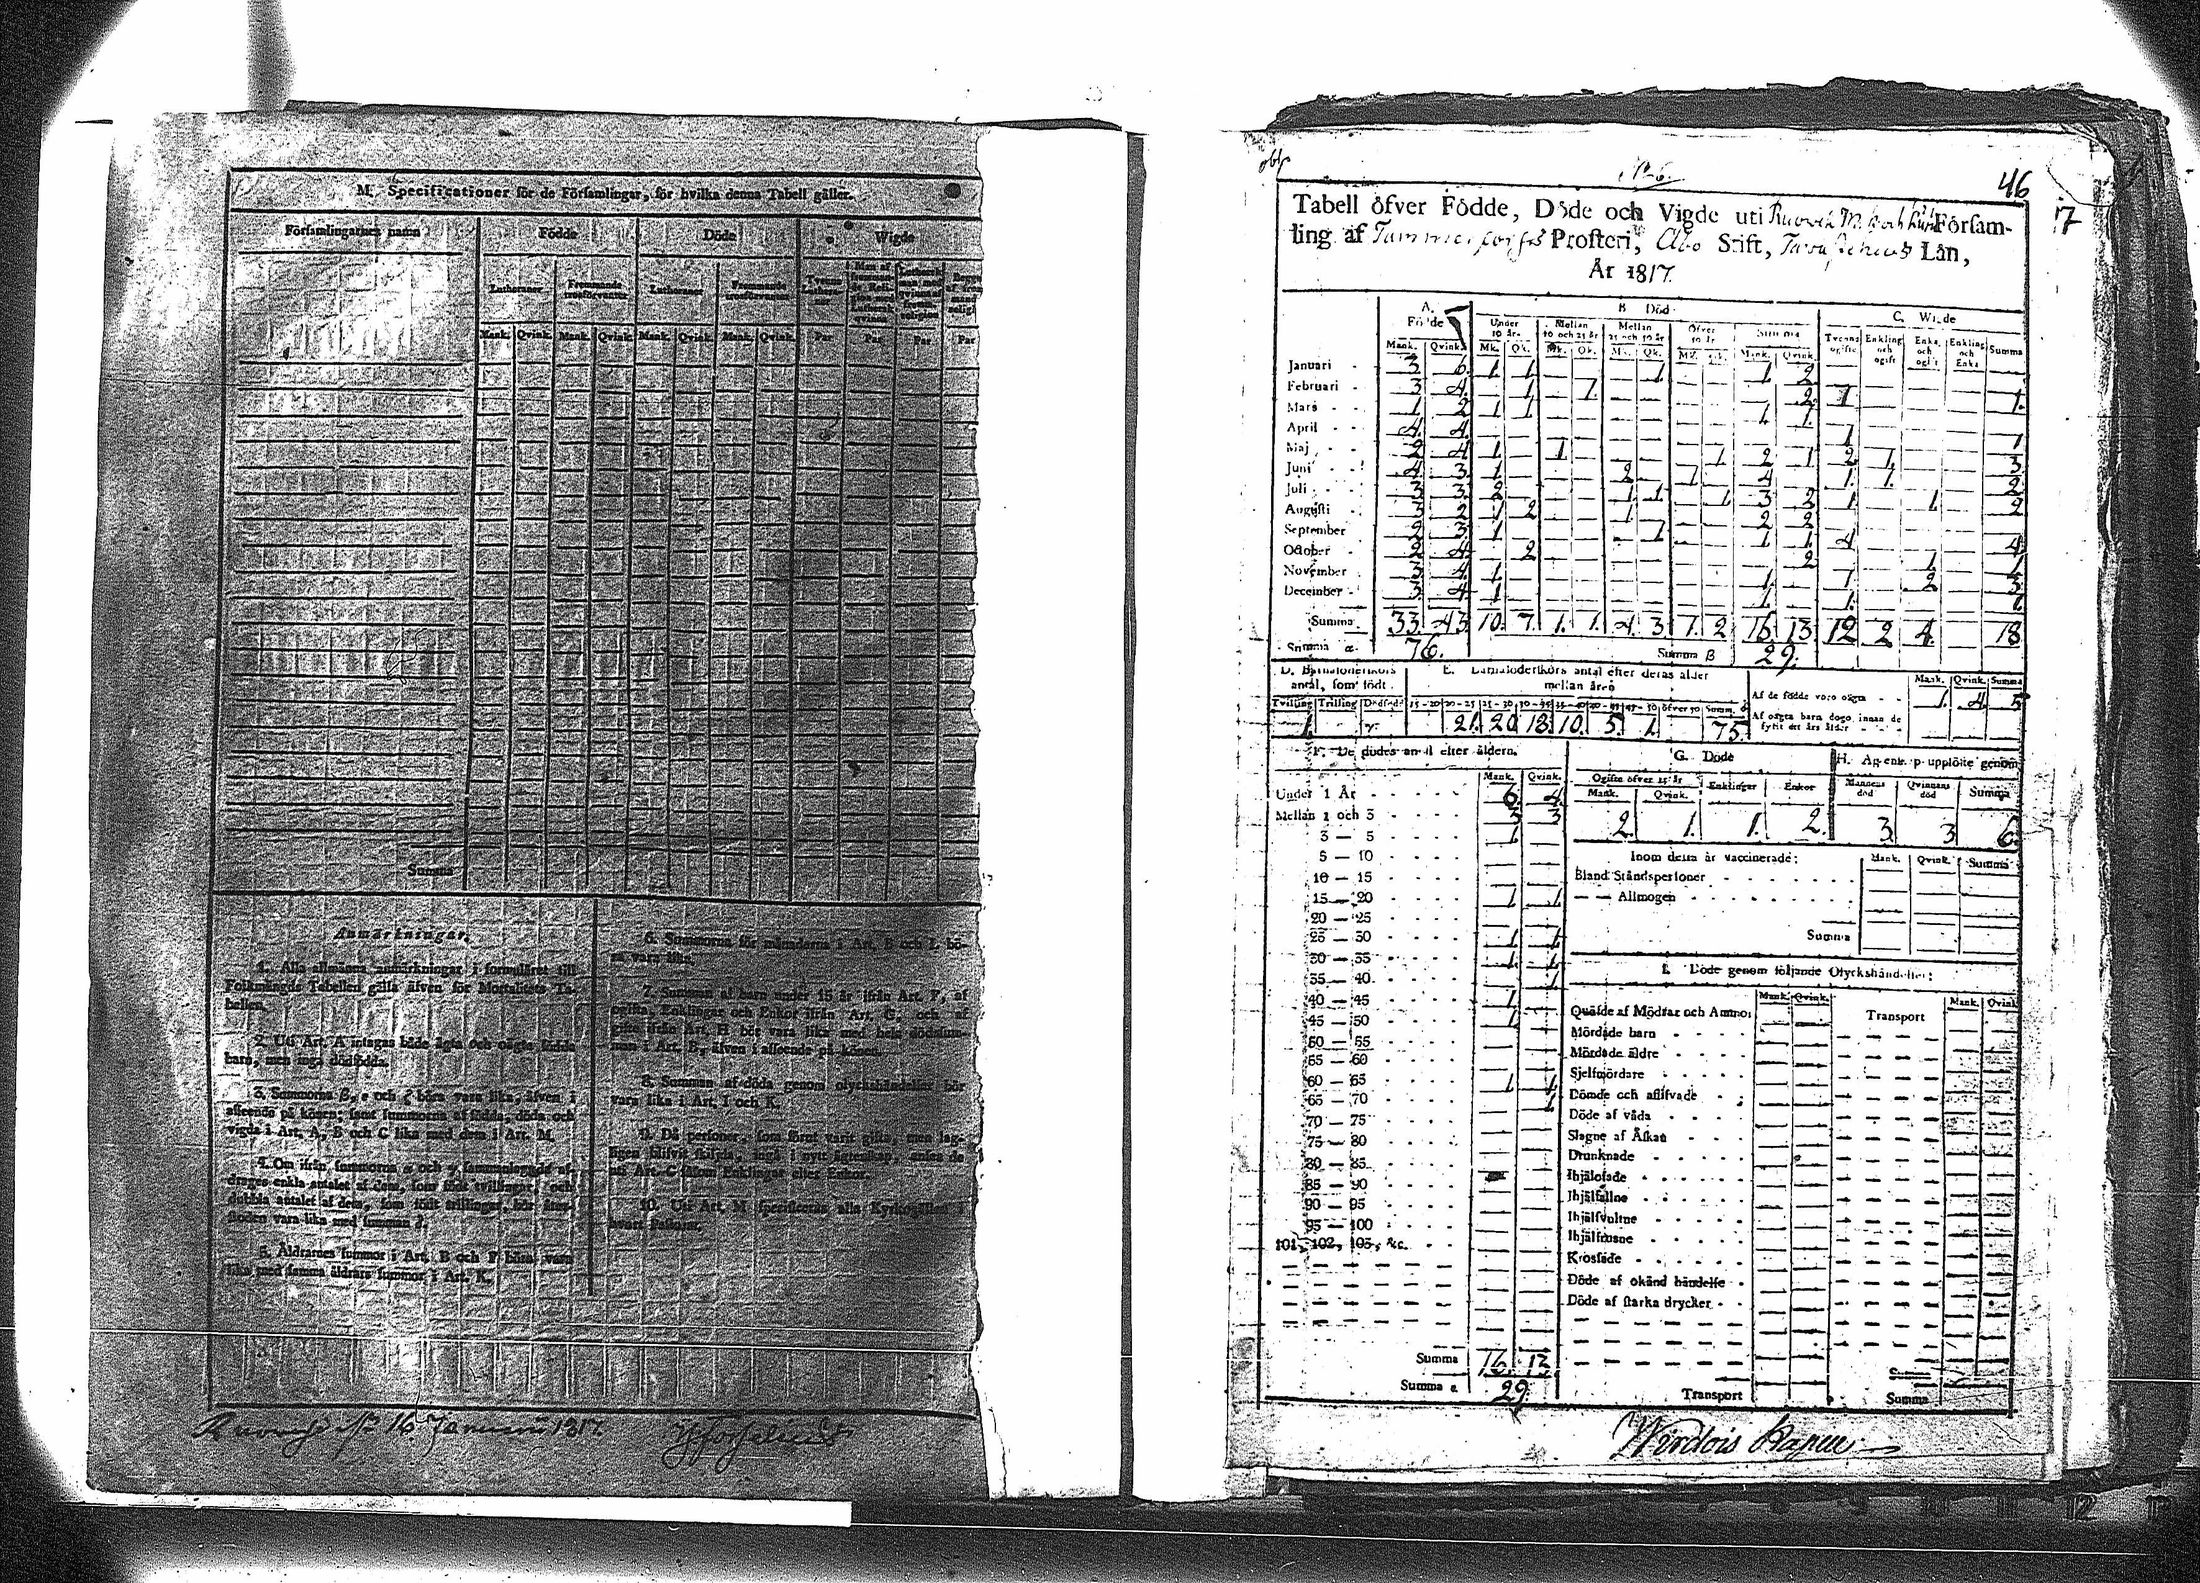 M. Specificationer för de Församlingar, för hvilka denna Tabell gäller.
Församlingarnes namn
Födde
Döde
Wigde
Lutheraner
Fremmande trosförvanter
Lutheraner
Fremmande trosförvanter
Mank. Qvink. Mank. Qvink. Mank. Qvink. Mank. Qvink. Par Par Par Par
Summa
Anmärkningar.
1. Alla allmänna anmärkningar i formuläret till
Folkmängds Tabellen gälla äfven för Mortalitets Ta-
bellen.
2. Uti Art. A intagas både ägta och oägta födde
barn, men inga dödfödda.
3. Summorna β, ε och ζ böra vara lika, äfven i
afseende på könen; samt summorna af födda, döda och
vigda i Art. A, B och C lika med dem i Art. M.
4. Om ifrån summorna α och γ sammanlagde af-
drages enkla antalet af dem, som födt tvillingar, och
dubbla antalet af dem, som födt trillingar, bör åter-
stoden vara lika med summan δ.
5. Åldrarnes summor i Art. B och F böra vara
lika med samma åldrars summor i Art. K.
6. Summorna för månaderna i Art. B och L bö-
ra vara lika.
7. Summan af barn under 15 år ifrån Art. F, af
ogifta, Enklingar och Enkor ifrån Art. G, och af
gifta ifrån Art. H bör vara lika med hela dödssum-
man i Art. B, äfven i afseende på könen.
8. Summan af döda genom olyckshändelser bör
vara lika i Art. I och K.
9. Då personer, som förut varit gifta, men lag-
ligen blifvit skilda, ingå i nytt ägtenskap, antes de
uti Art. C såsom Enklingar eller Enkor.
10. Uti Art. M specificeras alla Kyrkogällen i
hvart Pastorat.
16 Januarii 1817.
46
17
Tabell öfver Födde, Döde och Vigde uti Försam-
ling af Tammerfors Prosteri, Åbo Stift, Tavastehus Län,
År 1817.
A. Födde
B Död
C. Wigde
Under 10 år. Mellan 10 och 25 år Mellan 25 och 50 år Öfver 50 år Summa Tvenne ogifte Enkling och ogift Enka och ogift Enkling och Enka Summa
Mank. Qvink. Mk. Qk. Mk. Qk. Mk. Qk. Mk. Qk. Mank. Qvink.
Januari 3 6. 1 1 1 1 2
Februari 3 4. 1 1. 2 1 1.
Mars 1 2 1 1 1. 1.
April 4. 4. 1 1
Maj 2 4 1 1 1 2 1 2 1 3
Juni 4 3 1 2 1. 4 1. 1. 2
Juli 3 3 2 1 1 1 3 2 1 1 2
Augusti 3 2 1 2 1 2 2
September 2 3 1 1 1 1 4 4
October 2 4 2 2 1 1
November 3 4 1 1 1 2 3
December 3 4 1 1 1. 1
Summa 33 43 10. 7. 1. 1. 4 3. 1. 2 16 13 12 2 4. 18
Summa α 76.
Summa β 29.
D. Barnaföderskors antal, som födt
E. Barnaföderskors antal efter deras ålder mellan åren
Tvilling Trilling Dödfödt 15—20 20—25 25—30 30—35 35—40 40—45 45—50 öfver 50 Summ. δ
1. γ. 21. 20 18 10. 5. 1. 75.
Mank. Qvink. Summa
Af de födde voro oägta 1. 4 5
Af oägta barn dogo innan de
fyllt ett års ålder
F. De dödes antal efter åldern.
Mank. Qvink.
Under 1 År 6 4
Mellan 1 och 3 3 3
3 — 5 1
5 — 10
10 — 15
15 — 20 1 1
20 — 25
25 — 30 1 1
30 — 35 1 1
35 — 40 1
40 — 45 1
45 — 50 1
50 — 55
55 — 60
60 — 65 1 1
65 — 70 1
70 — 75
75 — 80
80 — 85
85 — 90
90 — 95
95 — 100
101, 102, 103, &c.
Summa 16. 13.
Summa ε 29.
G. Döde
Ogifte öfver 15 år Enklingar Enkor
Mank. Qvink.
2. 1. 1. 2.
H. Ägtenskap upplöste genom
Mannens död Qvinnans död Summa
3. 3 6.
Inom detta år vaccinerade: Mank. Qvink. Summa
Bland Ståndspersoner
— — Allmogen
Summa
I. Döde genom följande Olyckshändelser:
Mank. Qvink. Mank. Qvink.
Quäfde af Mödrar och Ammor Transport
Mördade barn
Mördade äldre
Sjelfmördare
Dömde och aflifvade
Döde af våda
Slagne af Åskan
Drunknade
Ihjälosade
Ihjälfallne
Ihjälsvultne
Ihjälfrusne
Krossade
Döde af okänd händelse
Döde af starka drycker
Transport Summa
Wirdois